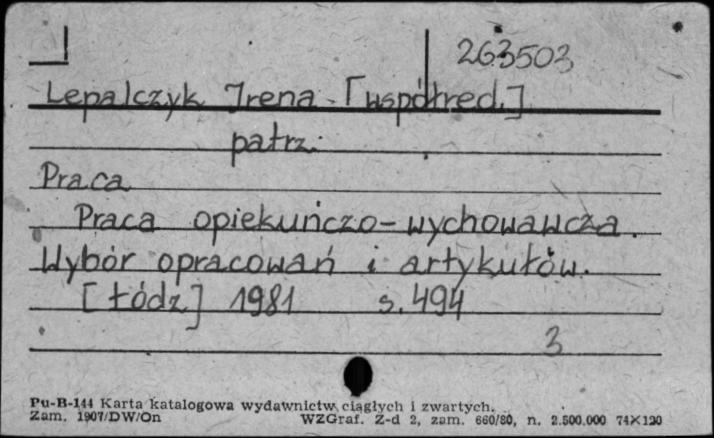 263503
Lepalczyk Irena [współred.]
patrz:
Praca
Praca opiekuńczo-wychowawcza.
Wybór opracowań i artykułów.
[Łódź] 1981 s. 494
3
Pu-B-144 Karta katalogowa wydawnictw ciągłych i zwartych.
Zam. 1907/DW/On WZGraf. Z-d 2, zam. 660/80, n. 2.500.000 74×120